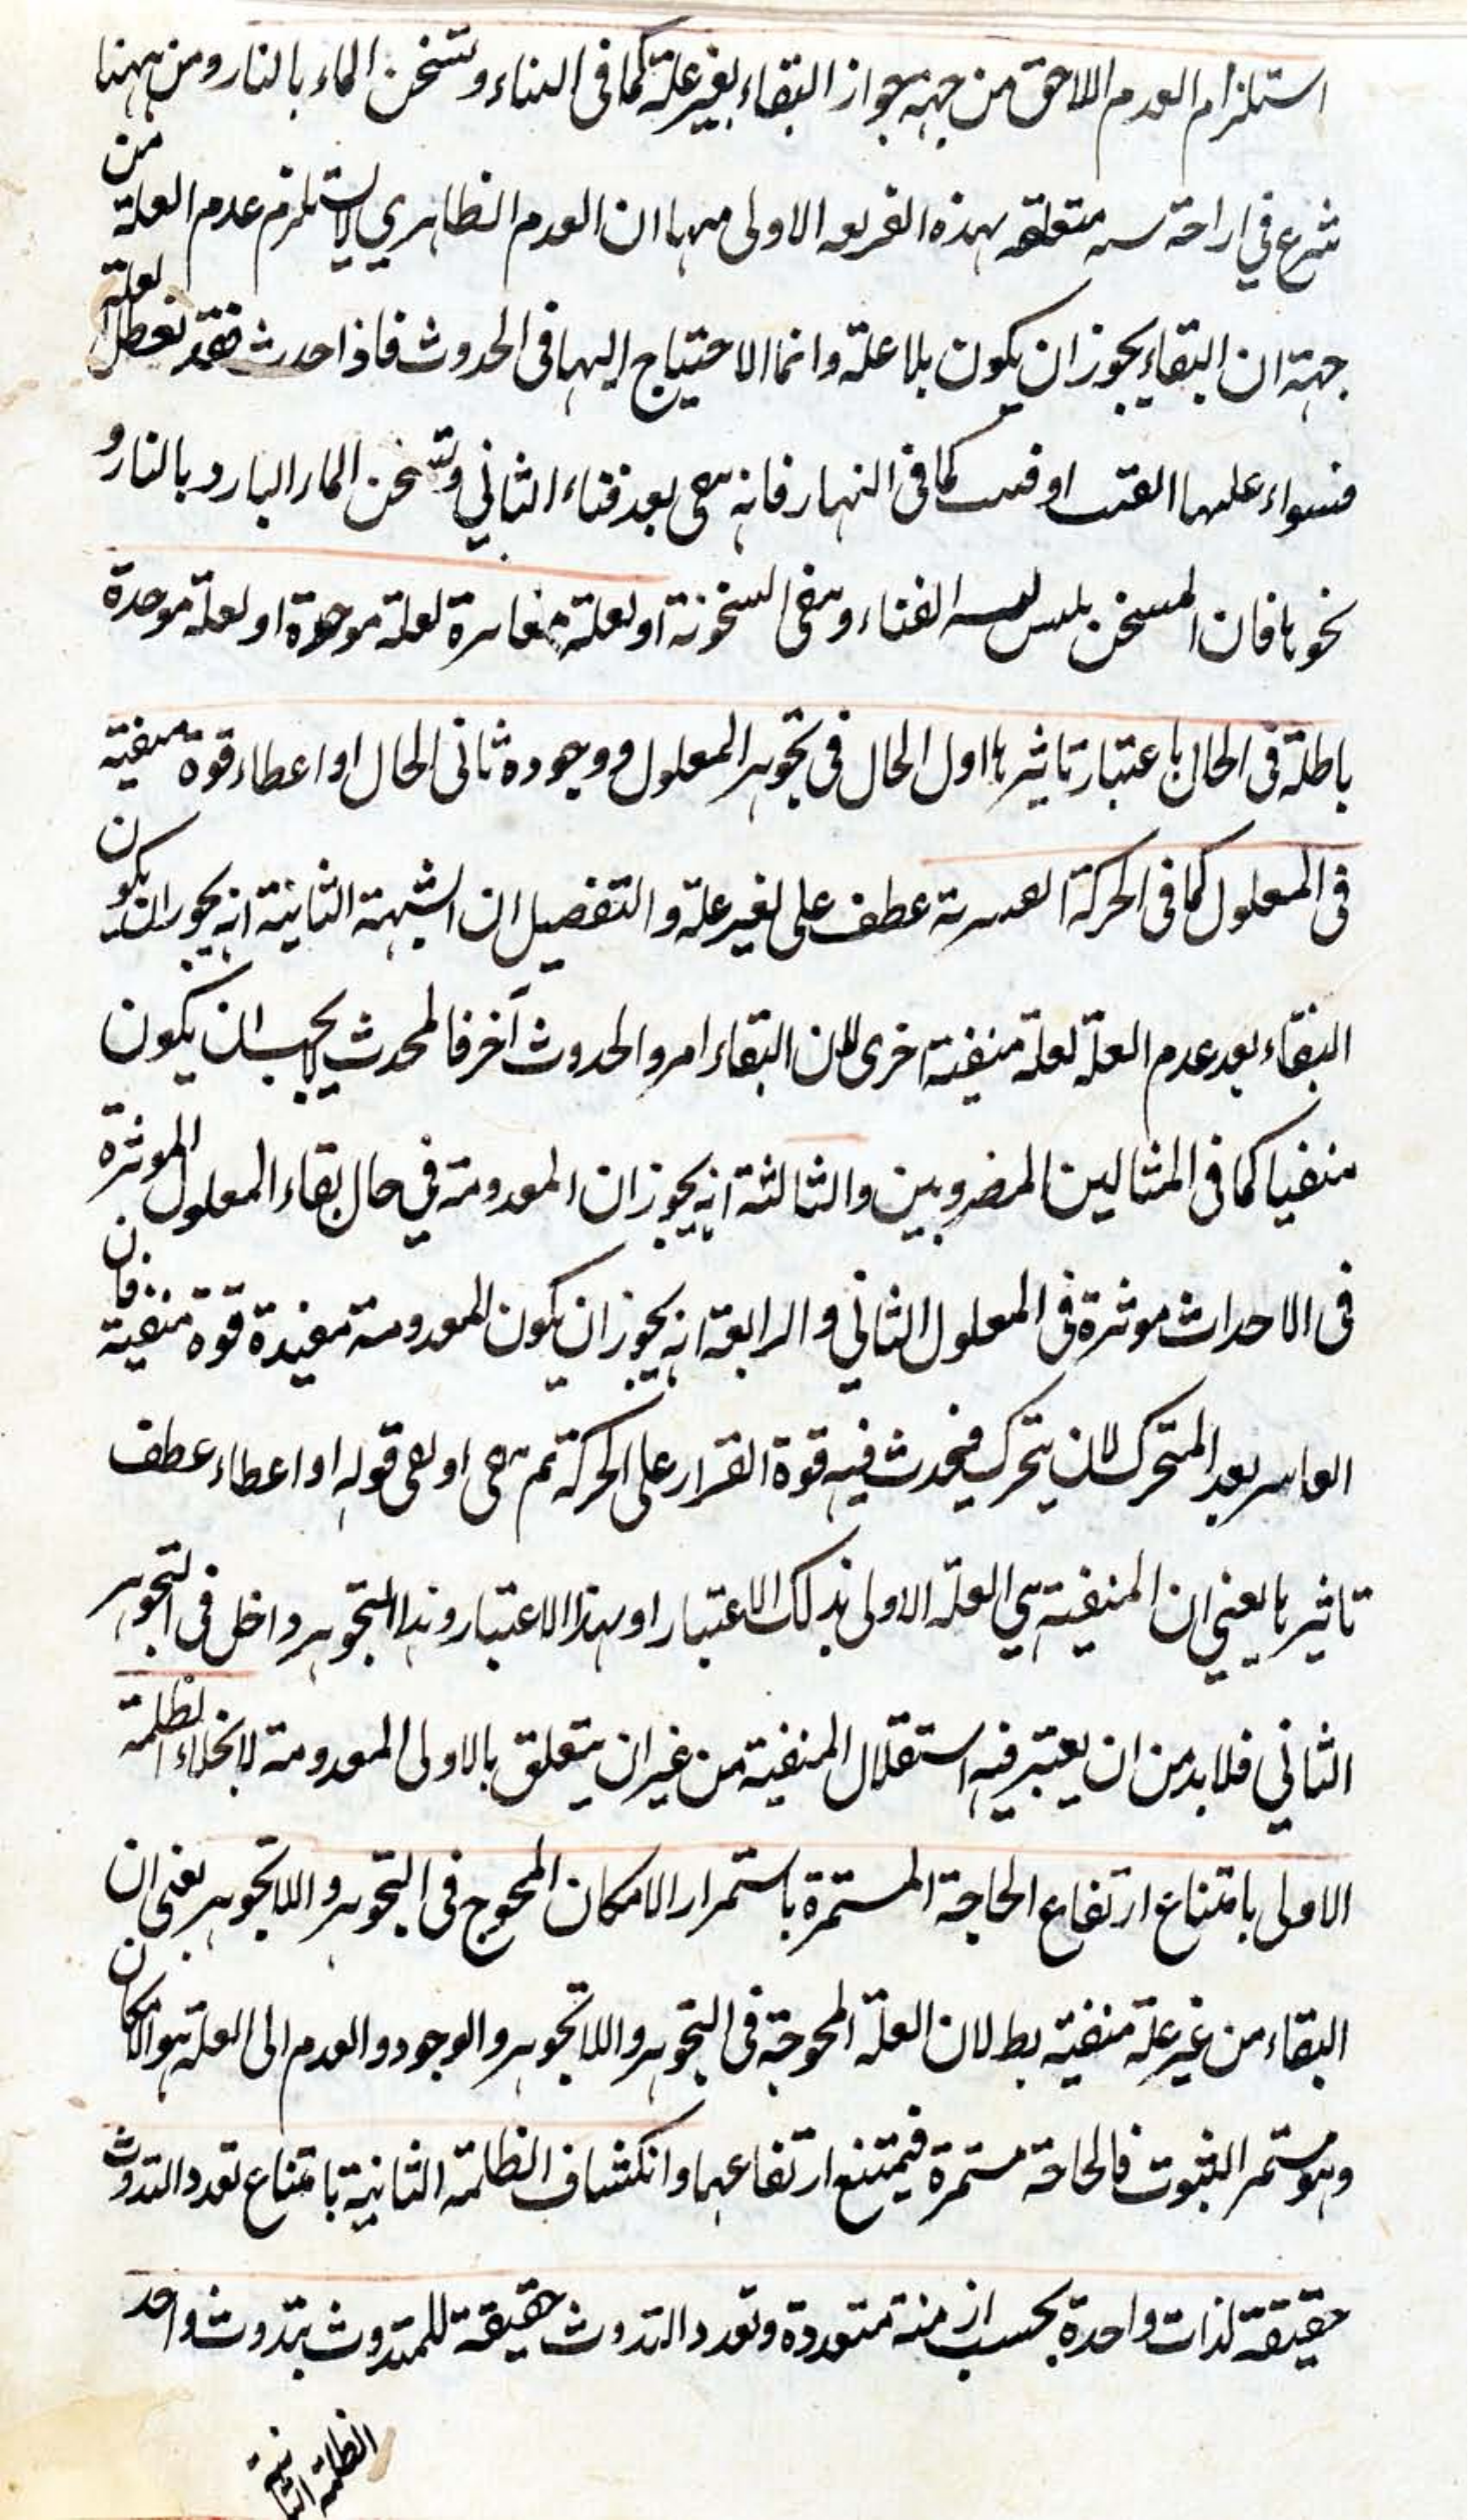 استلزام العدم اللاحق من جهة جواز البقاء بغير علة كما فى البناء وتسخن الماء بالنار ومن ههنا
شرع في ازاحة متعلقه بهذه الفريعه الاولى منها ان العدم الظاهري لا يستلزم عدم العلة من
جهة ان البقاء يجوز ان يكون بلا علة وانما الاحتياج اليها فى الحدوث فاذا حدث فقد تعطل العلة
فسواء عليها او فنيت كما فى النهار فانه يبقى بعد فناء الثاني وتسخن الماء البارد بالنار و
نحوها فان المسخن الفناء ويبقى السخونة او لعلة مغايرة لعلة موجودة او لعلة موجدة
باطلة فى الحال باعتبار تاثيرها اول الحال فى تجوهر المعلول ووجوده ثانى الحال او اعطاء قوة مبقية
فى المعلول كما فى الحركة القسرية عطف على بغير علة والتفصيل ان الشبهة الثانية انه يجوز ان يكون
البقاء بعد عدم العلة لعلة مبقية اخرى لان البقاء امر والحدوث آخر فالمحدث لا يجب ان يكون
مبقيا كما فى المثالين المضروبين والثالثة انه يجوز ان المعدومة في حال بقاء المعلول الموثرة
فى الاحداث موثرة فى المعلول الثاني والرابعة انه يجوز ان يكون المعدومة مفيدة قوة مبقية فان
القاسر يعد المتحرك لان يتحرك فيحدث فيه قوة القرار على الحركة ثم يبقى او بقى قوله او اعطاء عطف
تاثيرها يعني ان المبقية هي العلة الاولى بذلك الاعتبار او بهذا الاعتبار وهذا التجوهر داخل فى التجوهر
الثاني فلا بد من ان يعتبر فيه استقلال المبقية من غير ان يتعلق بالاولى المعدومة لانجلاء الظلمة
الاولى بامتناع ارتفاع الحاجة المستمرة باستمرار الامكان المحوج فى التجوهر واللاتجوهر يعنى ان
البقاء من غير علة مبقية بط لان العلة المحوجة فى التجوهر واللاتجوهر والوجود والعدم الى العلة هو الامكان
وهو مستمر الثبوت فالحاجة مستمرة فيمتنع ارتفاعهما وانكشاف الظلمة الثانية بامتناع تعدد التذوت
حقيقة لذات واحدة بحسب ازمنة متعددة وتعدد التذوت حقيقة للمتذوت بتذوت واحد
الظلمة الثانية